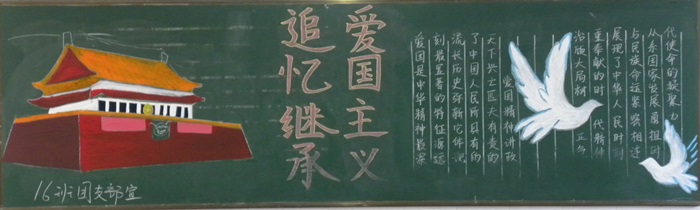 追忆继承
爱国主义
爱国是中华精神最深
刻最显著的特征源远
流长历史弥新它体现
了中国人民所固有的
天下兴亡匹夫有责的
爱国精神讲政
治顾大局树 正气
重奉献的时代精神
展现了中华人民时刻
与民族命运紧密相连
国家发展肩担时
代使命的凝聚力
16班团支部宣